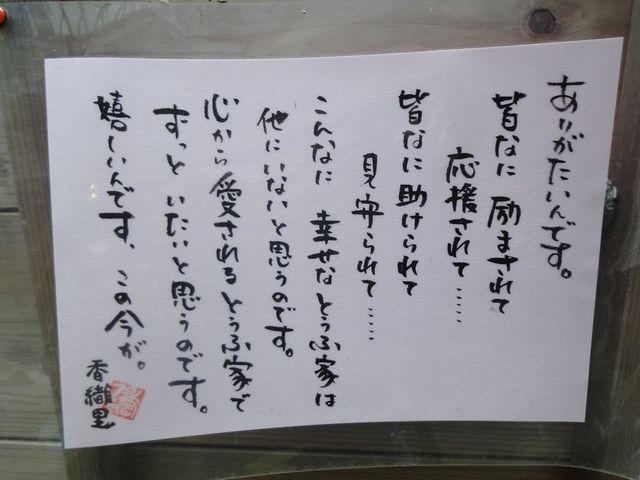 ありがたいんです。
皆なに励まされて
応援されて……
皆なに助けられて
見守られて……
こんなに幸せなとうふ家は
他にいないと思うのです。
心から愛されるとうふ家で
ずっといたいと思うのです。
嬉しいんです、この今が。
香織里